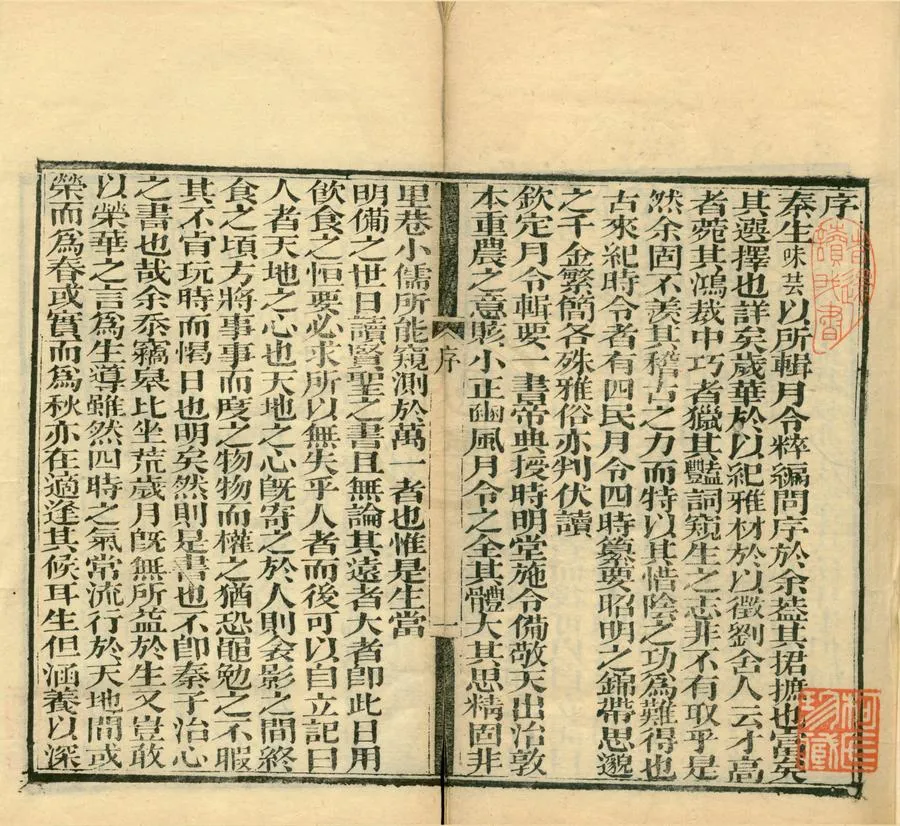 序
秦生味芸以所輯月令粹編問序於余蓋其捃摭也當矣
其選擇也詳矣歲華於以紀雅材於以徵劉舍人云才高
者菀其鴻裁中巧者獵其豔詞窺生之志非不有取乎是
然余固不羨其稽古之力而特以其惜陰之功為難得也
古來紀時令者有四民月令四時纂要昭明之錦帶思邈
之千金繁簡各殊雅俗亦判伏讀
欽定月令輯要一書帝典授時明堂施令備敬天出治敦
本重農之意賅小正豳風月令之全其體大其思精固非
序
一
里巷小儒所能窺測於萬一者也惟是生當
明備之世日讀賢聖之書且無論其遠者大者卽此日用
飲食之恒要必求所以無失乎人者而後可以自立記曰
人者天地之心也天地之心旣寄之於人則衾影之間終
食之頃方將事事而度之物物而權之猶恐黽勉之不暇
其不肯玩時而愒日也明矣然則是書也不卽秦子治心
之書也哉余忝竊皋比坐荒歲月旣無所益於生又豈敢
以榮華之言為生導雖然四時之氣常流行於天地間或
榮而為春或實而為秋亦在適逢其候耳生但涵養以深
讀我書
珍藏